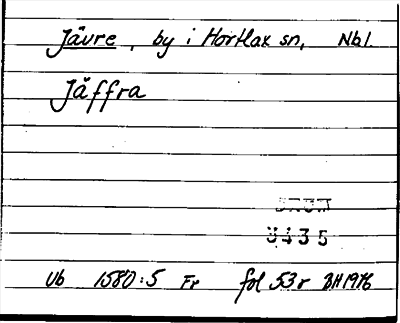 Jävre, by i Hortlax sn, Nbl.
Jäffra
9435
Ub 1580:5 Fr fol 53r BH1976